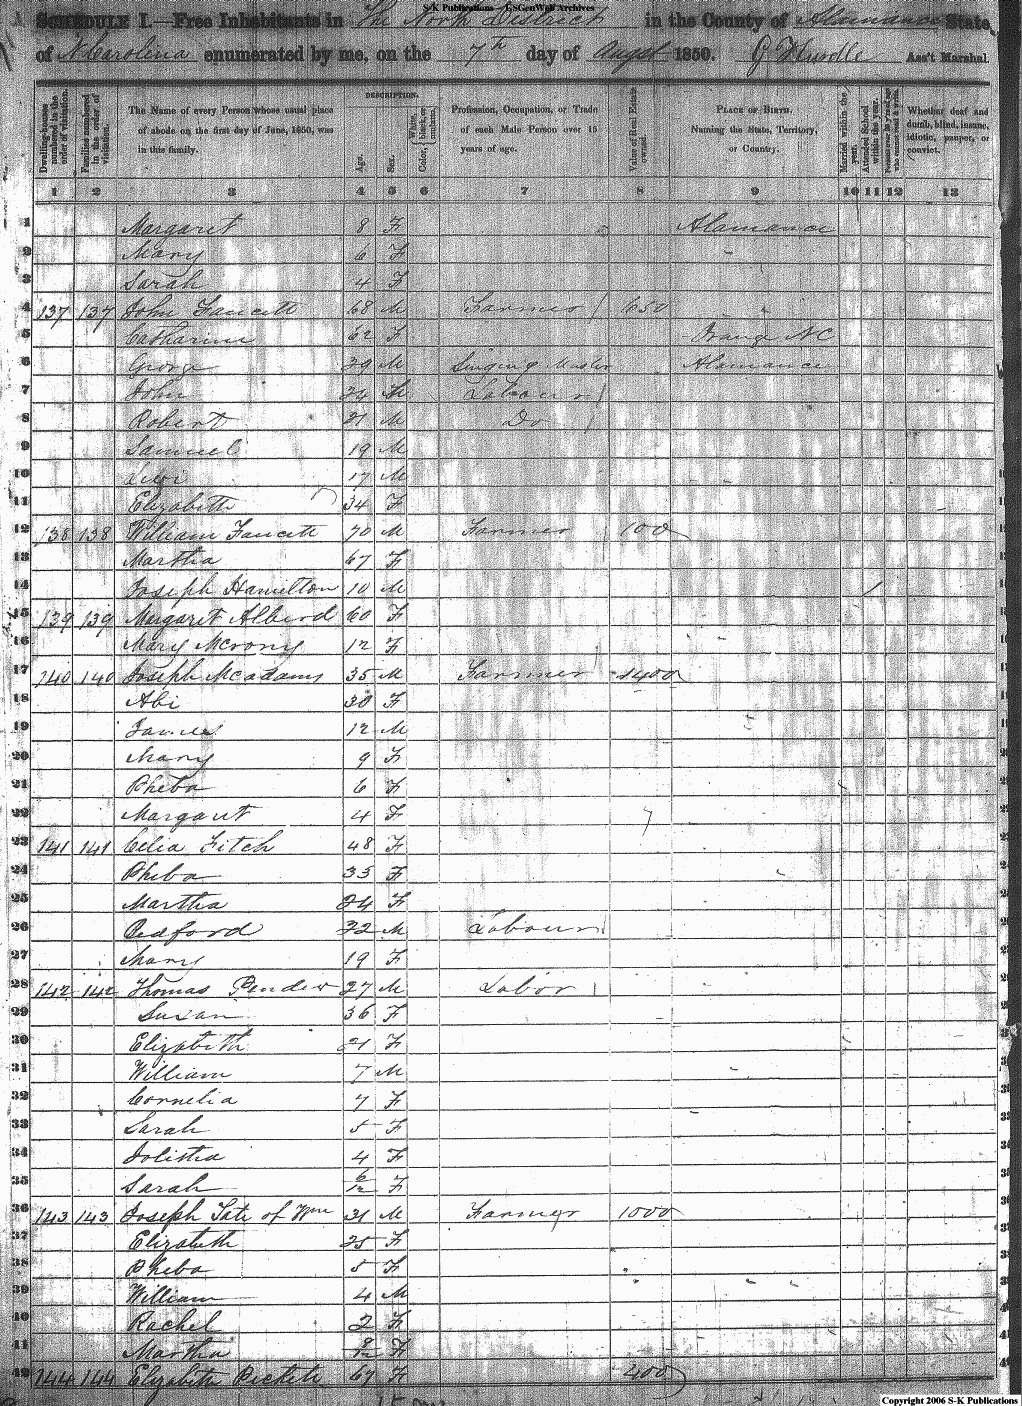 S-K Publications - USGenWeb Archives
SCHEDULE I.—Free Inhabitants in The North District in the County of Alamance State
of N Carolina enumerated by me, on the 7th day of Augst 1850. Ass't Marshal.
Dwelling-houses numbered in the order of visitation.
Families numbered in the order of visitation.
The Name of every Person whose usual place of abode on the first day of June, 1850, was in this family.
DESCRIPTION.
Age.
Sex.
Color, White, black, or mulatto.
Profession, Occupation, or Trade of each Male Person over 15 years of age.
Value of Real Estate owned.
PLACE OF BIRTH, Naming the State, Territory, or Country.
Married within the year.
Attended School within the year.
Whether deaf and dumb, blind, insane, idiotic, pauper, or convict.
1 2 3 4 5 6 7 8 9 10 11 12 13
1 Margaret 8 F Alamance
2 Mary 6 F
3 Sarah 4 F
4 137 137 John Faucett 68 M Farmer 650
5 Catharine 62 F Orange NC
6 George 29 M Singing Master Alamance
7 John 24 M Labour
8 Robert 21 M Do
9 Samuel 19 M
10 Levi 17 M
11 Elizabeth 34 F
12 138 138 William Faucett 70 M Farmer 100
13 Martha 67 F
14 Joseph Hamelton 10 M /
15 139 139 Margaret Alberd 60 F
16 Mary Mcrony 12 F
17 140 140 Joseph Mcadams 35 M Farmer 1400
18 Abi 30 F
19 James 12 M
20 Mary 9 F
21 Pheba 6 F
22 Margaret 4 F
23 141 141 Celia Fitch 48 F
24 Pheba 35 F
25 Martha 24 F
26 Bedford 22 M Labour
27 Mary 19 F
28 142 142 Thomas Pender 27 M Labor
29 Susan 36 F
30 Elizabeth 21 F
31 William 7 M
32 Cornelia 7 F
33 Sarah 5 F
34 4 F
35 Sarah 6/12 F
36 143 143 Joseph Tate of Wm 31 M Farmer 1000
37 Elizabeth 25 F
38 Pheba 5 F
39 William 4 M
40 Rachel 2 F
41 Martha F
42 144 144 Elizabeth Pickett 67 F 400
Copyright 2006 S-K Publications